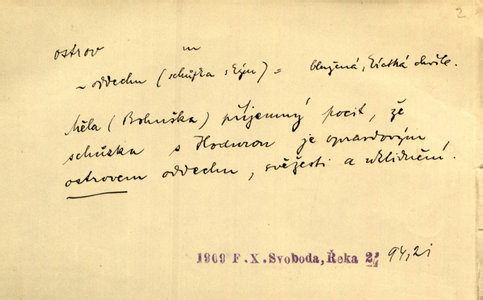 2
ostrov m
~ oddechu (schůzka s kým) = blažená, krátká chvíle.
Měla (Bohuška) příjemný pocit, že
schůzka s Hodurou je opravdovým
ostrovem oddechu, svěžesti a uklidnění.
1909 F. X. Svoboda, Řeka 94,2i